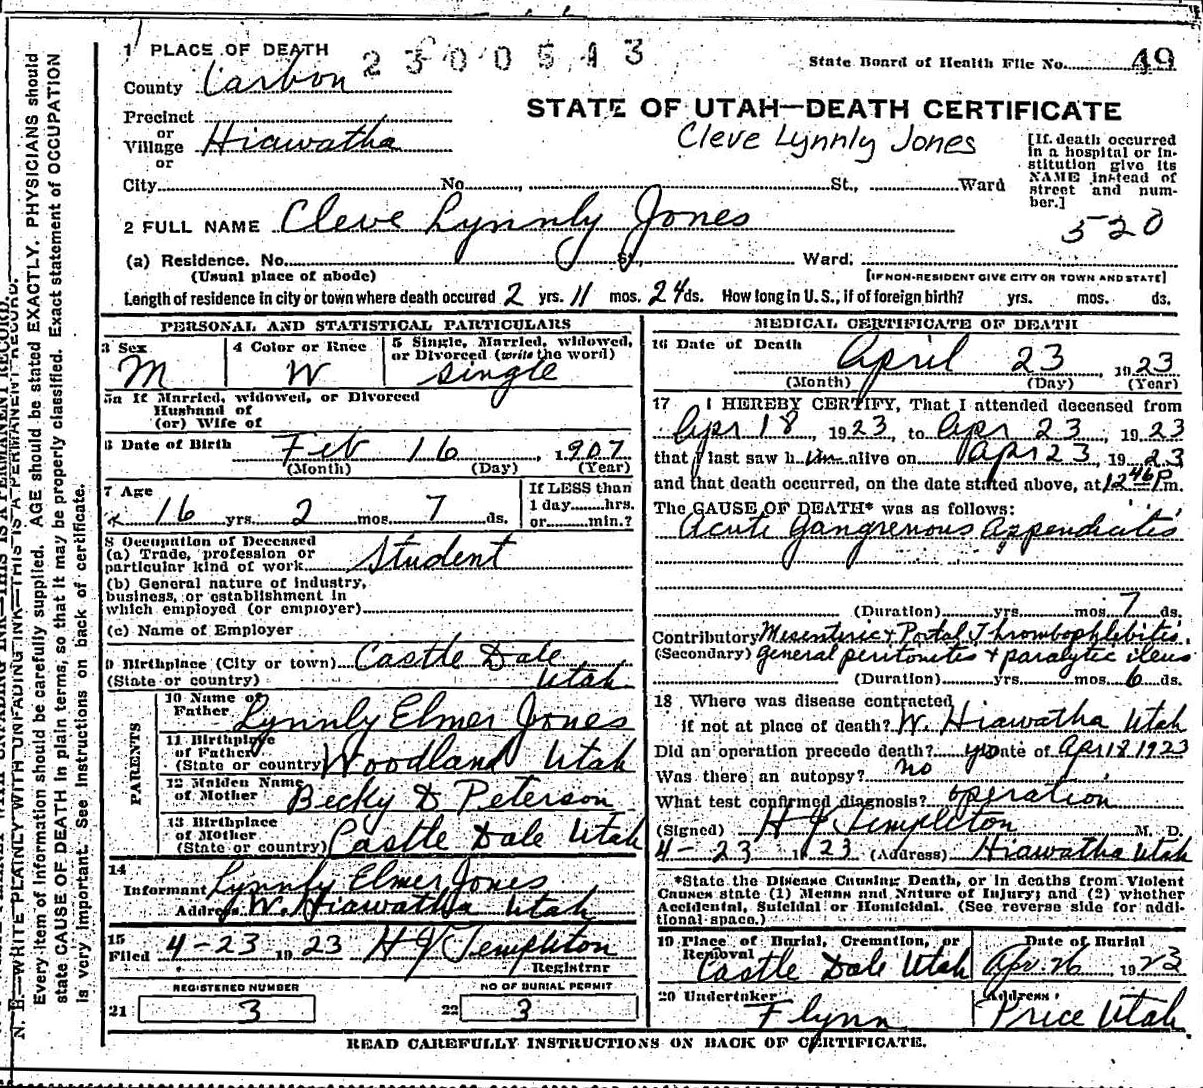 1 PLACE OF DEATH
2300543
State Board of Health File No. 49
County Carbon
STATE OF UTAH—DEATH CERTIFICATE
Precinct
or
Village Hiawatha
or
Cleve Lynnly Jones
[If death occurred in a hospital or institution give its NAME instead of street and number.]
City No , St., Ward
520
2 FULL NAME Cleve Lynnly Jones
(a) Residence. No. St., Ward.
(Usual place of abode)
[IF NON-RESIDENT GIVE CITY OR TOWN AND STATE]
Length of residence in city or town where death occured 2 yrs. 11 mos. 24 ds. How long in U. S., if of foreign birth? yrs. mos. ds.
PERSONAL AND STATISTICAL PARTICULARS
3 Sex
M
4 Color or Race
W
5 Single, Married, widowed,
or Divorced (write the word)
single
5a If Married, widowed, or Divorced
Husband of
(or) Wife of
6 Date of Birth Feb 16, 1907
(Month) (Day) (Year)
7 Age
16 yrs. 2 mos. 7 ds.
If LESS than
1 day hrs.
or min.?
8 Occupation of Deceased
(a) Trade, profession or
particular kind of work Student
(b) General nature of industry,
business, or establishment in
which employed (or employer)
(c) Name of Employer
9 Birthplace (City or town) Castle Dale
(State or country) Utah
PARENTS
10 Name of
Father Lynnly Elmer Jones
11 Birthplace
of Father
(State or country) Woodland Utah
12 Maiden Name
of Mother Becky D Peterson
13 Birthplace
of Mother
(State or country) Castle Dale Utah
14
Informant Lynnly Elmer Jones
Address W. Hiawatha Utah
15
Filed 4-23 1923 H J Templeton
Registrar
REGISTERED NUMBER
21 3
NO OF BURIAL PERMIT
22 3
MEDICAL CERTIFICATE OF DEATH
16 Date of Death April 23, 1923
(Month) (Day) (Year)
17 I HEREBY CERTIFY, That I attended deceased from
Apr 18, 1923, to Apr 23, 1923
that I last saw him alive on Apr 23, 1923
and that death occurred, on the date stated above, at 12 46 P.m.
The CAUSE OF DEATH* was as follows:
Acute Gangrenous Appendicitis
(Duration) yrs. mos. 7 ds.
Contributory Mesenteric & Portal Thrombophlebitis.
(Secondary) general peritonitis & paralytic ileus
(Duration) yrs. mos. 6 ds.
18 Where was disease contracted
if not at place of death? W. Hiawatha Utah
Did an operation precede death? yes Date of Apr 18 1923
Was there an autopsy? no
What test confirmed diagnosis? operation
(Signed) H J Templeton M. D.
4-23 1923 (Address) Hiawatha Utah
*State the Disease Causing Death, or in deaths from Violent
Causes state (1) Means and Nature of Injury; and (2) whether
Accidental, Suicidal or Homicidal. (See reverse side for addi-
tional space.)
19 Place of Burial, Cremation, or
Removal
Castle Dale Utah
Date of Burial
Apr. 26, 1923
20 Undertaker
Flynn
Address
Price Utah
READ CAREFULLY INSTRUCTIONS ON BACK OF CERTIFICATE.
N. B.—WRITE PLAINLY WITH UNFADING INK—THIS IS A PERMANENT RECORD.
Every item of information should be carefully supplied. AGE should be stated EXACTLY. PHYSICIANS should
state CAUSE OF DEATH in plain terms, so that it may be properly classified. Exact statement of OCCUPATION
is very important. See instructions on back of certificate.